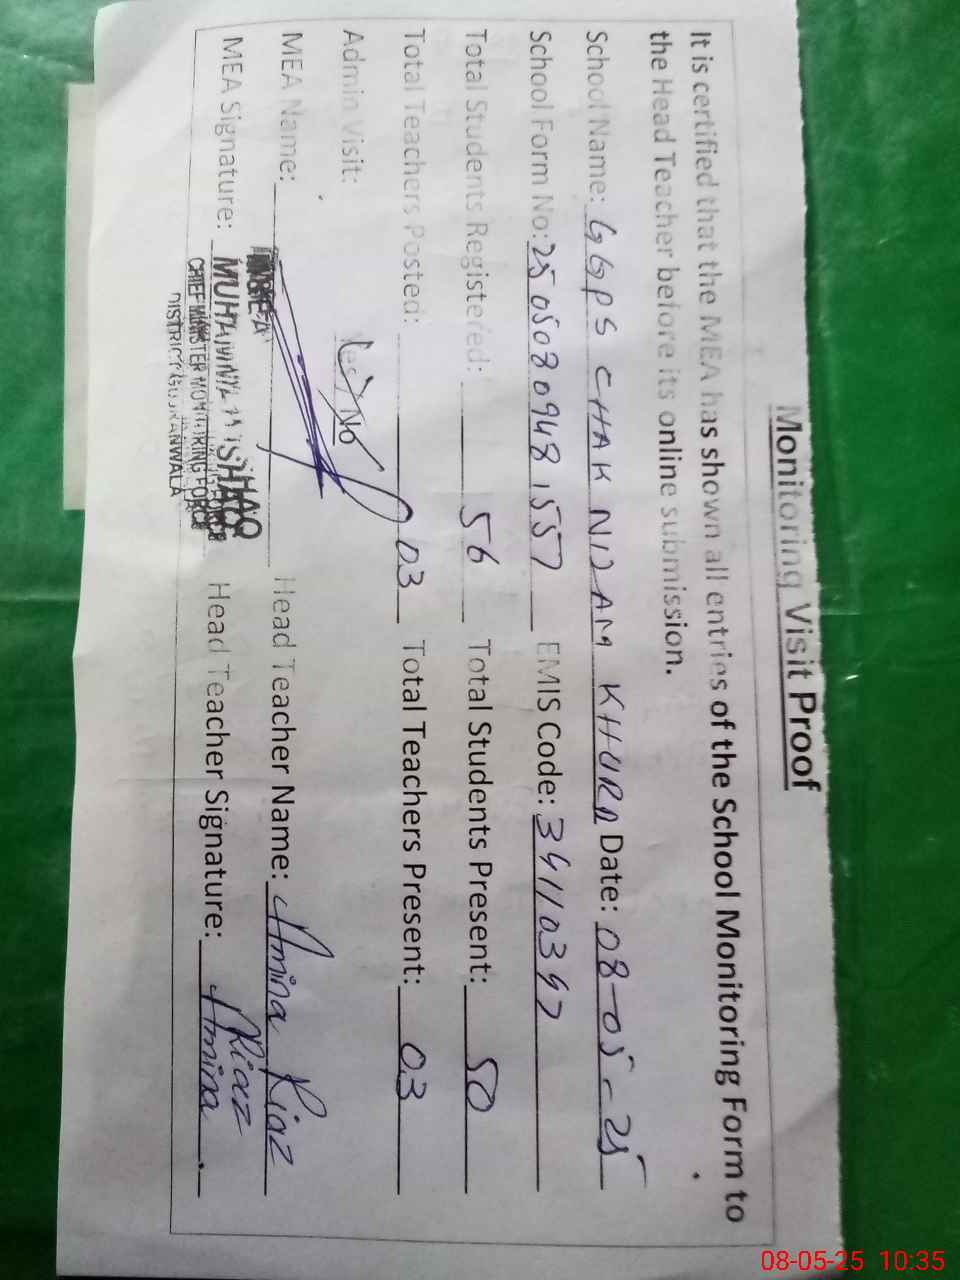 Monitoring Visit Proof
It is certified that the MEA has shown all entries of the School Monitoring Form to
the Head Teacher before its online submission.
School Name: GGPS CHAK NIZAM KHURD Date: 08-05-25
School Form No: 25050809481557 EMIS Code: 34110347
Total Students Registered: 56 Total Students Present: 50
Total Teachers Posted: 03 Total Teachers Present: 03
Admin Visit: Yes/No
MEA Name: Head Teacher Name: Amina Riaz
MEA Signature: MUHAMMAD ISHAQ Head Teacher Signature: Amina Riaz
CHIEF MINISTER MONITORING FORCE
DISTRICT GUJRANWALA
08-05-25 10:35